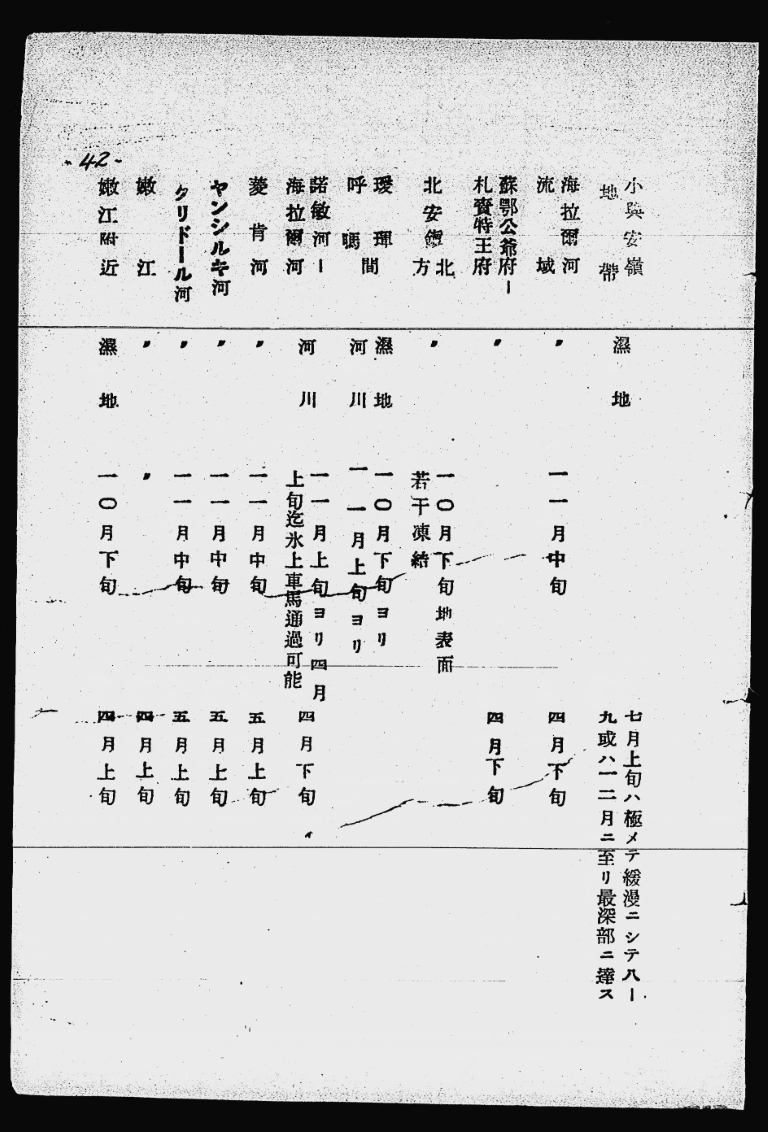 -42-
小興安嶺
地帶
濕地
七月上旬ハ極メテ緩漫ニシテ八ー
九或ハ一二月ニ至リ最深部ニ達ス
海拉爾河
流域
〃
一一月中旬
四月下旬
蘇鄂公爺府ー
札賚特王府
〃
四月下旬
北安鎭北
方
〃
一〇月下旬地表面
若干凍結
璦琿間
呼嗎
濕地
河川
一〇月下旬ヨリ
一一月上旬ヨリ
諾敏河ー
海拉爾河
河川
一一月上旬ヨリ四月
上旬迄氷上車馬通過可能
四月下旬
菱肯河
〃
一一月中旬
五月上旬
ヤンシルキ河
〃
一一月中旬
五月上旬
クリドール河
〃
一一月中旬
五月上旬
嫩江
〃
〃
四月上旬
嫩江附近
濕地
一〇月下旬
四月上旬